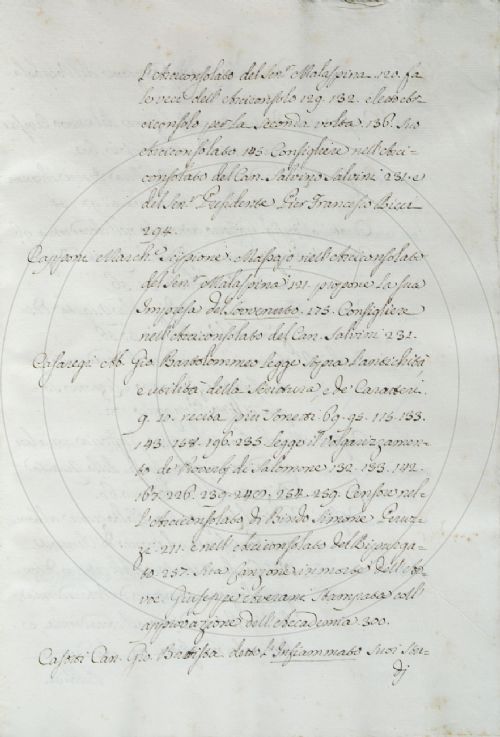 l'Arciconsolato del Sen.r Malaspina. 120. fa
le veci dell'Arciconsolo 129. 132. eletto Ar-
ciconsolo per la seconda volta 136. Suo
Arciconsolato 145. Consigliere nell'Arci-
consolato del Can. Salvino Salvini 231. e
del Sen.r Presidente Pier Francesco Ricci
294.
Capponi March.e Scipione Massajo nell'Arciconsolato
del Sen.r Malaspina 121. propone la sua
Impresa del Sovvenuto. 175. Consigliere
nell'Arciconsolato del Can. Salvini 231.
Casaregi Ab. Gio. Bartolommeo legge sopra l'antichità
e utilità della Scrittura, e de' Caratteri.
9. 10. recita più Sonetti. 69. 95. 115. 133.
143. 158. 196. 235. legge il Volgarizzamen-
to de' Proverbj di Salomone 132. 133. 142.
167. 226. 239. 254. 259. Censore nel-
l'Arciconsolato di Bindo Simone Peruz-
zi 211. e nell'Arciconsolato del
to. 257. Sua Canzone in morte dell'Av-
voc. Giuseppe Averani stampata coll'
approvazione dell'Accademia 300.
Casotti Can. Gio. Battista detto l'Infiammato suoi Stu-
dj